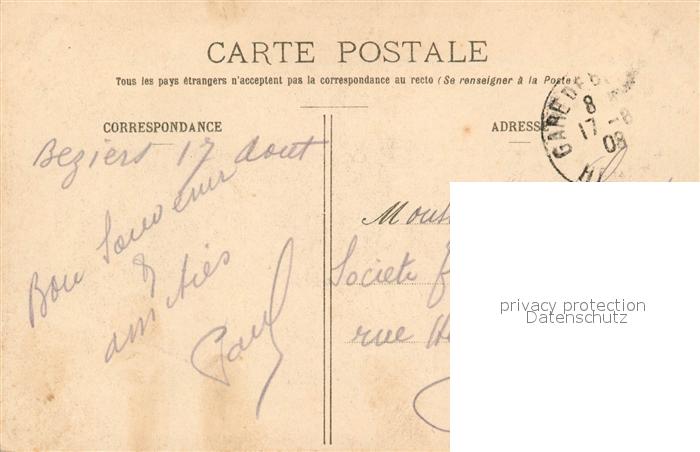 CARTE POSTALE
Tous les pays étrangers n'acceptent pas la correspondance au recto (Se renseigner à la Poste)
CORRESPONDANCE
ADRESSE
GARE DE B
8
17 -8
08
Beziers 17 Aout
Bon Souvenir
&
amitiés
Paul
Societe
rue
privacy protection
Datenschutz